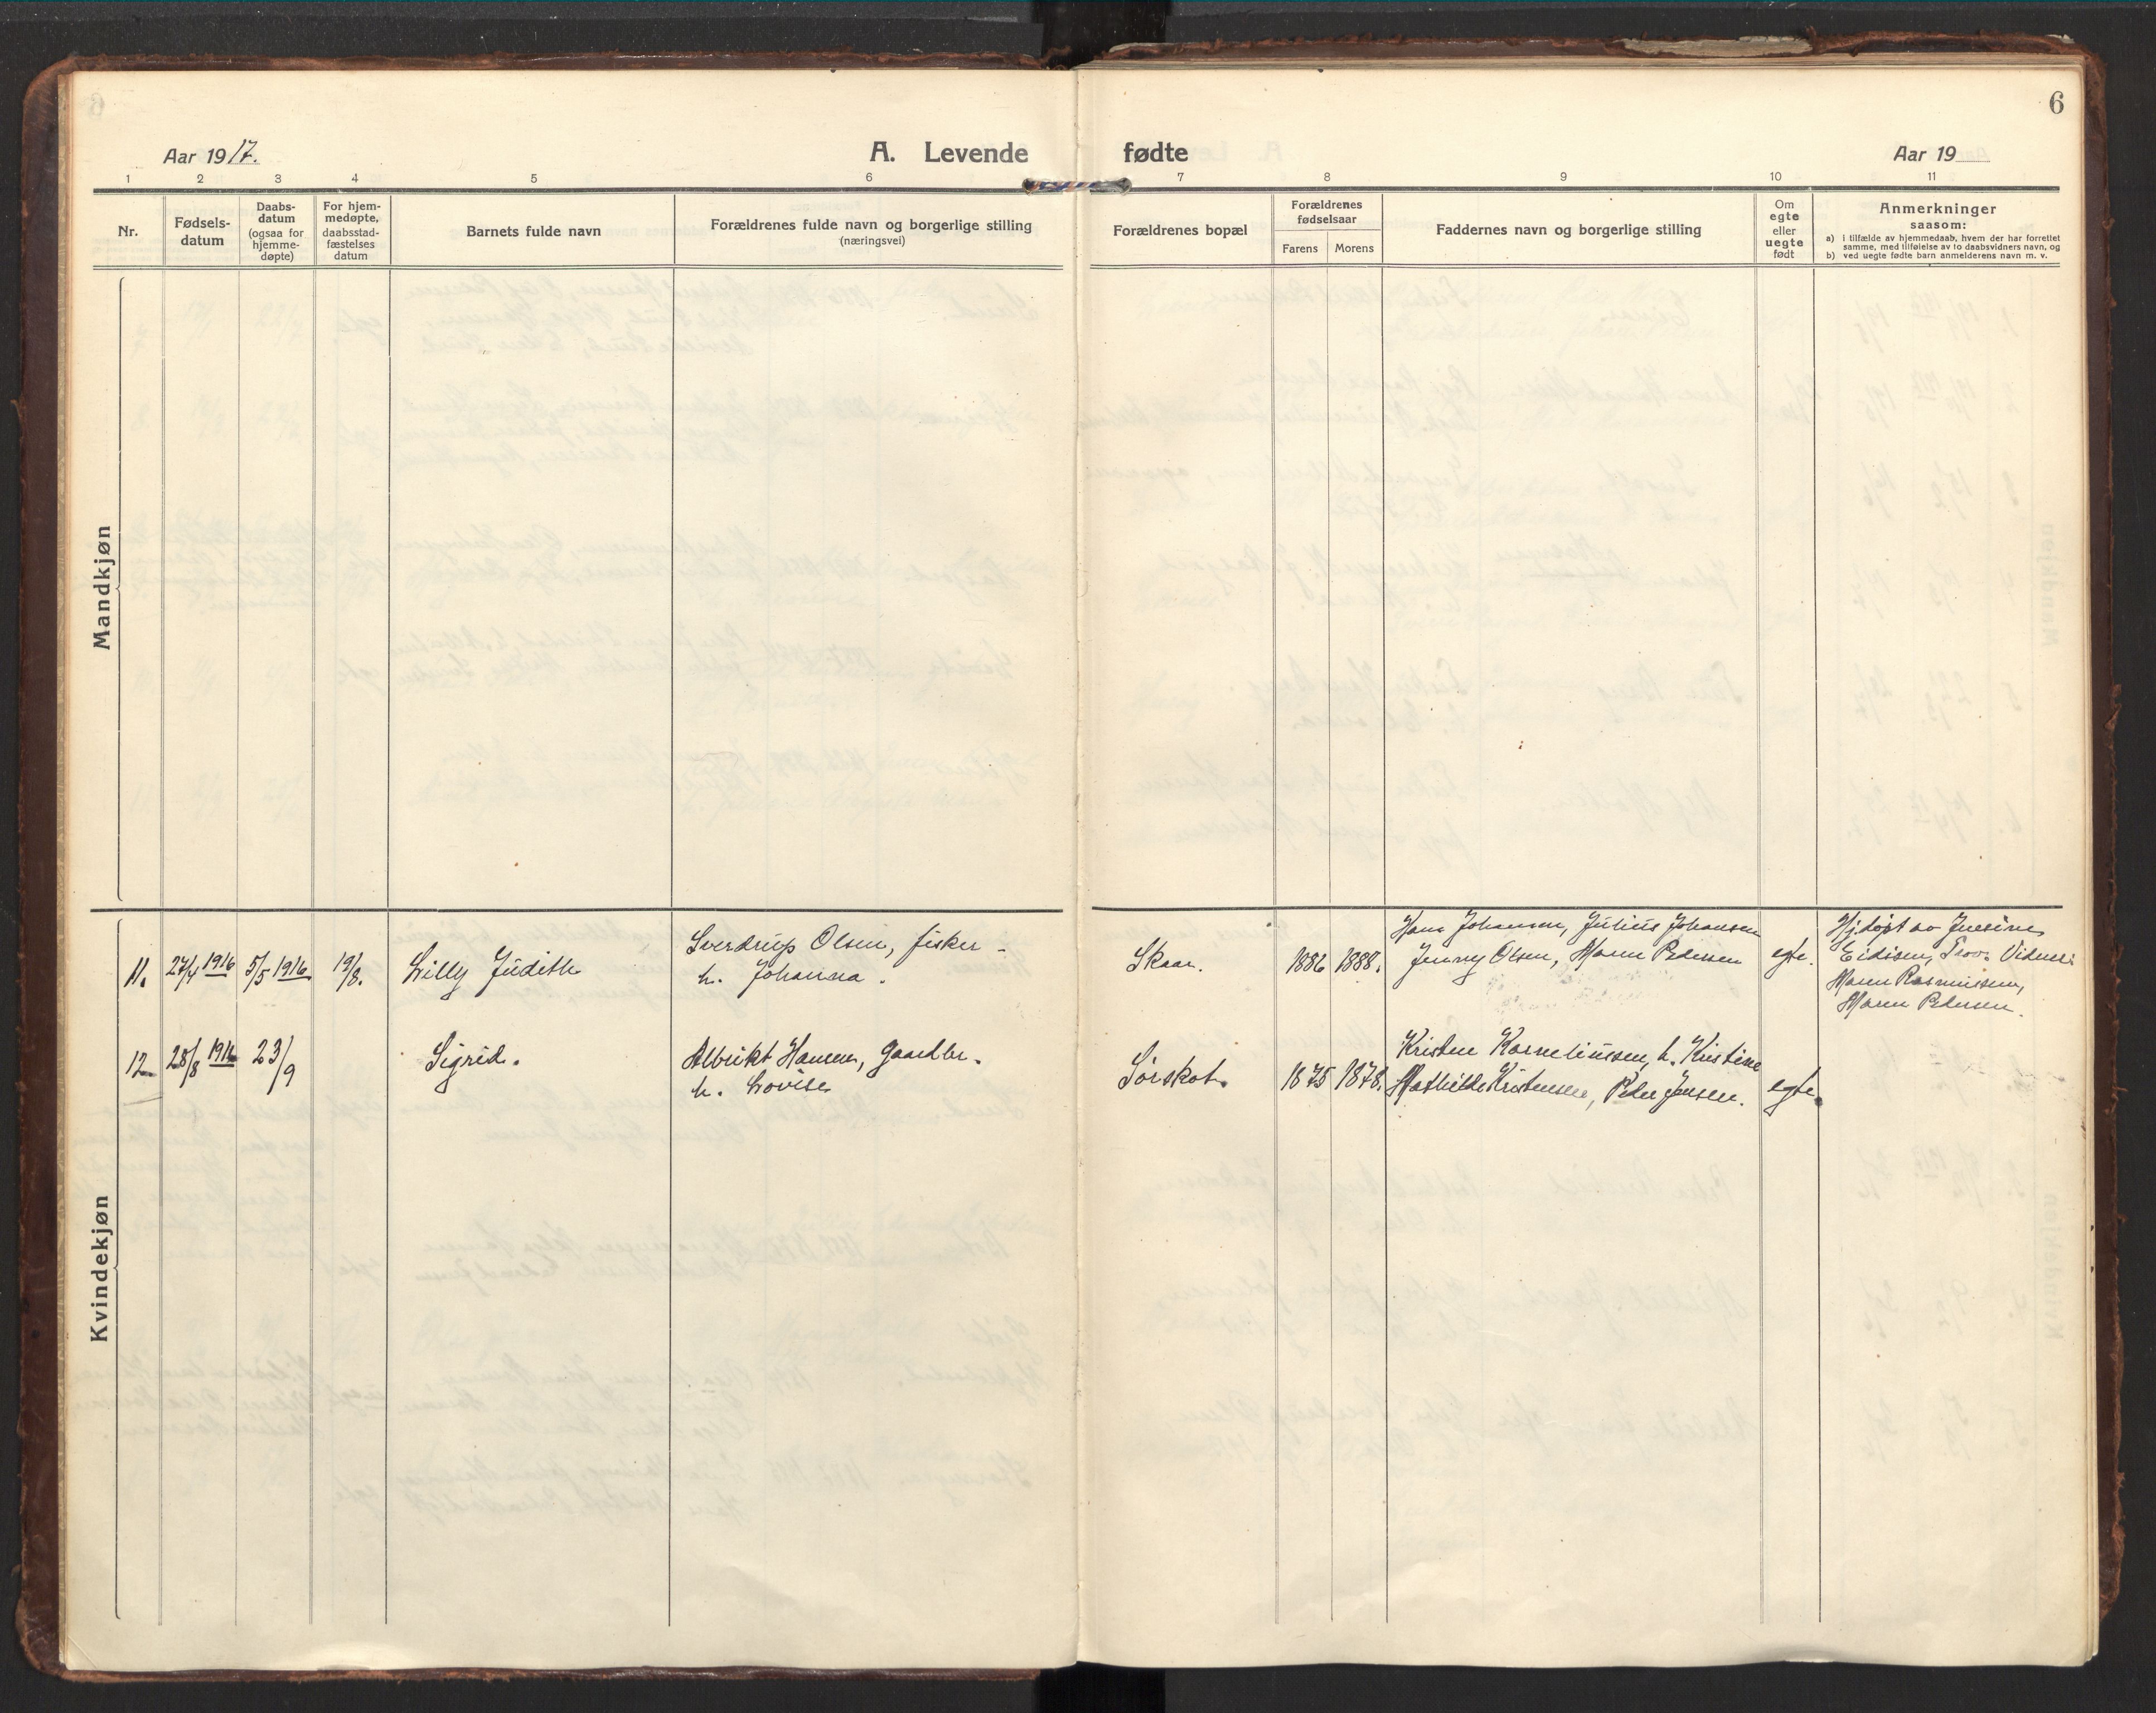 6
Aar 1917.
A. Levende fødte
Aar 19
1 2 3 4 5 6 7 8 9 10 11
Nr.
Fødsels-
datum
Daabs-
datum
(ogsaa for
hjemme-
døpte)
For hjem-
medøpte,
daabsstad-
fæstelses
datum
Barnets fulde navn
Forældrenes fulde navn og borgerlige stilling
(næringsvei)
Forældrenes bopæl
Forældrenes
fødselsaar
Farens Morens
Faddernes navn og borgerlige stilling
Om
egte
eller
uegte
født
Anmerkninger
saasom:
a) i tilfælde av hjemmedaab, hvem der har forrettet
samme, med tilføielse av to daabsvidners navn, og
b) ved uegte fødte barn anmelderens navn m. v.
Mandkjøn
Kvindekjøn
11.
27/4 1916
5/5 1916
19/8.
Lilly Judith
Sverdrup Olsen, fisker -
h. Johanna.
Skaar.
1886 1888.
Hans Johansen, Julius Johansen
Jenny Olsen, Maren Pedersen
egte.
Hj.døpt av Jensine
Eidisen, Trov. Vidner:
Maren Rasmussen,
Maren Pedersen.
12
28/8 1916
23/9
Sigrid.
Albrikt Hansen, Gaardbr.
h. Lovise
Sørskot.
1875 1878.
Kristen Korneliussen, h. Kristine
Mathilde Kristensen, Peder Jensen.
egte.